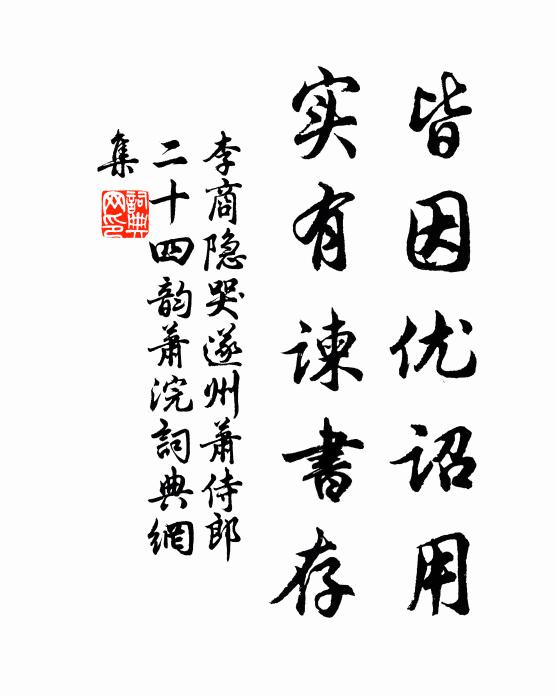 皆因优诏用
实有谏書存
李商隐哭遂州蕭侍郎
二十四韵蕭浣詞典網
集
詞典
网印